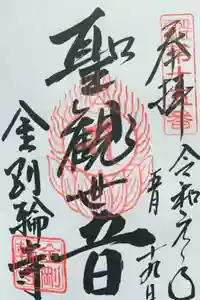 奉拝
令和元年
五月
十九日
聖観世音
金剛輪寺